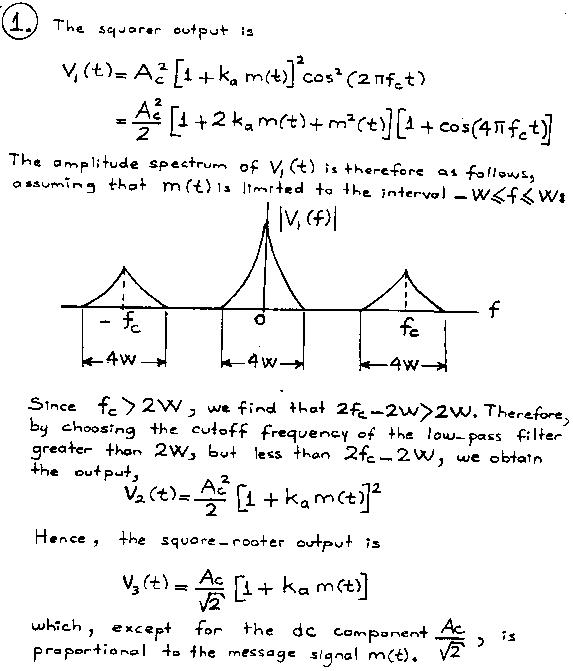 1. The squarer output is
V₁(t) = A_c² [1 + kₐ m(t)]² cos² (2πf_c t)
= A_c²/2 [1 + 2kₐ m(t) + m²(t)] [1 + cos(4πf_c t)]
The amplitude spectrum of V₁(t) is therefore as follows,
assuming that m(t) is limited to the interval -W⩽f⩽W:
|V₁(f)|
f
-f_c 0 f_c
4W 4W 4W
Since f_c > 2W, we find that 2f_c - 2W > 2W. Therefore,
by choosing the cutoff frequency of the low-pass filter
greater than 2W, but less than 2f_c - 2W, we obtain
the output,
V₂(t) = A_c²/2 [1 + kₐ m(t)]²
Hence, the square-rooter output is
V₃(t) = A_c/√2 [1 + kₐ m(t)]
which, except for the dc component A_c/√2, is
proportional to the message signal m(t).